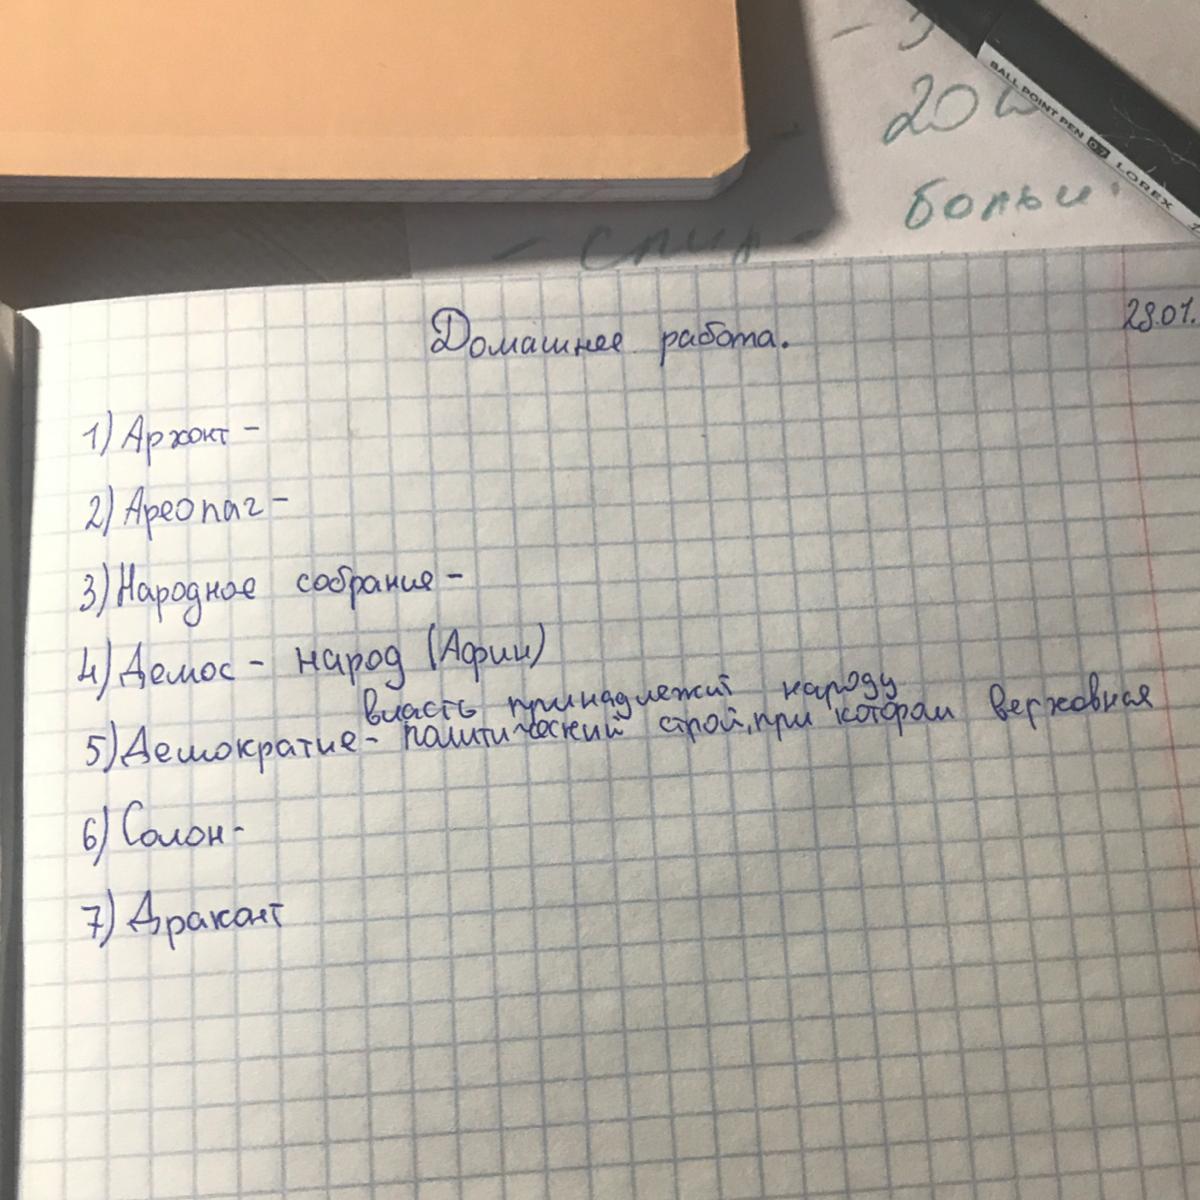 20
BALL POINT PEN 0.7 LOREX
Домашнее работа.
28.01.
1) Архонт -
2) Ареопаг -
3) Народное собрание -
4) Демос - народ (Афин)
власть принадлежит народу
5) Демократие - политический строй, при котором верховная
6) Солон -
7) Драконт